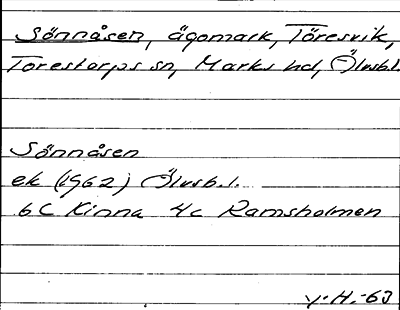 Sönnåsen, ägomark, Töresvik,
Torestorps sn, Marks hd, Älvsb.l.
Sönnåsen
ek (1962) Älvsb.l.
6C Kinna 4c Ramsholmen
y.H.-63